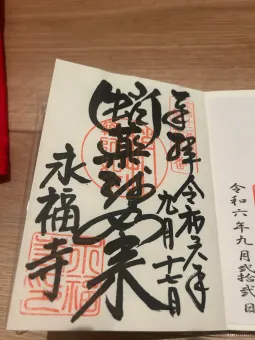 令和六年九月弐拾弐日
奉拝
令和六年
九月十七日
蛸薬師如来
永福寺